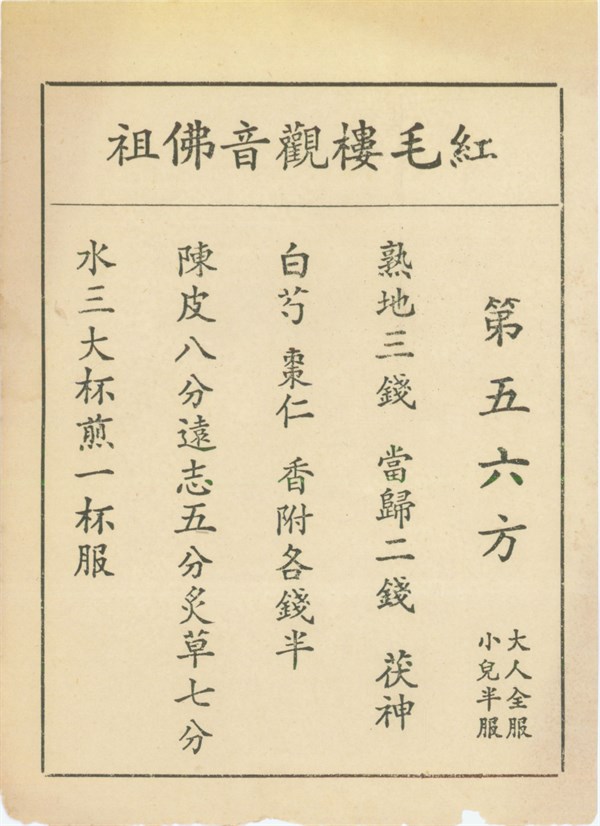 紅毛樓觀音佛祖
第五六方
大人全服
小兒半服
熟地三錢 當歸二錢 茯神
白芍 棗仁 香附各錢半
陳皮八分遠志五分炙草七分
水三大杯煎一杯服